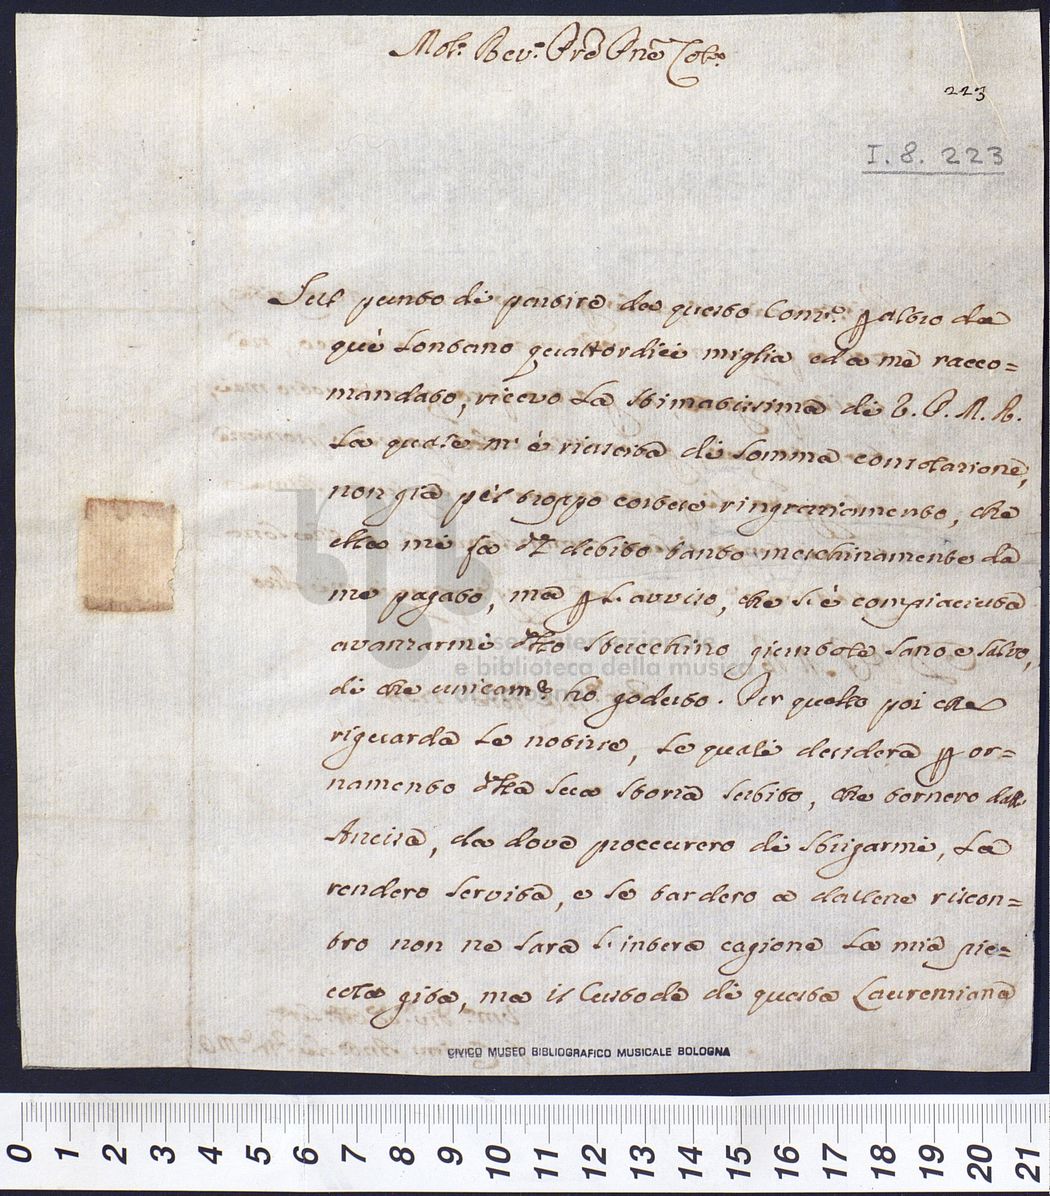 Mol. Rev. Pre Pne Col.
223
I. 8. 223
Sul punto di partire da questo Conv. p altro da
quì lontano quattordici miglia ed a me racco=
mandato, ricevo la stimatissima di V. P. M. R.
la quale m' è riuscita di somma consolazione,
non già pel troppo cortese ringraziamento, che
ella mi fa del debito tanto meschinamente da
me pagato, ma p l'avviso, che s' è compiaciuta
avanzarmi dello stucchino giuntole sano e salvo,
di che unicam.e ho goduto. Per quello poi che
riguarda le notizie, le quali desidera p or=
namento della sua storia subito, che tornero dall
Ancisa, da dove proccurero di sbrigarmi, la
rendero servita, e se tardero a darlene riscon=
tro non ne sara l'intera cagione la mia pic=
cola gita, ma il Custode di questa Laurenziana
museo internazionale
e biblioteca della musica
CIVICO MUSEO BIBLIOGRAFICO MUSICALE BOLOGNA
0 1 2 3 4 5 6 7 8 9 10 11 12 13 14 15 16 17 18 19 20 21